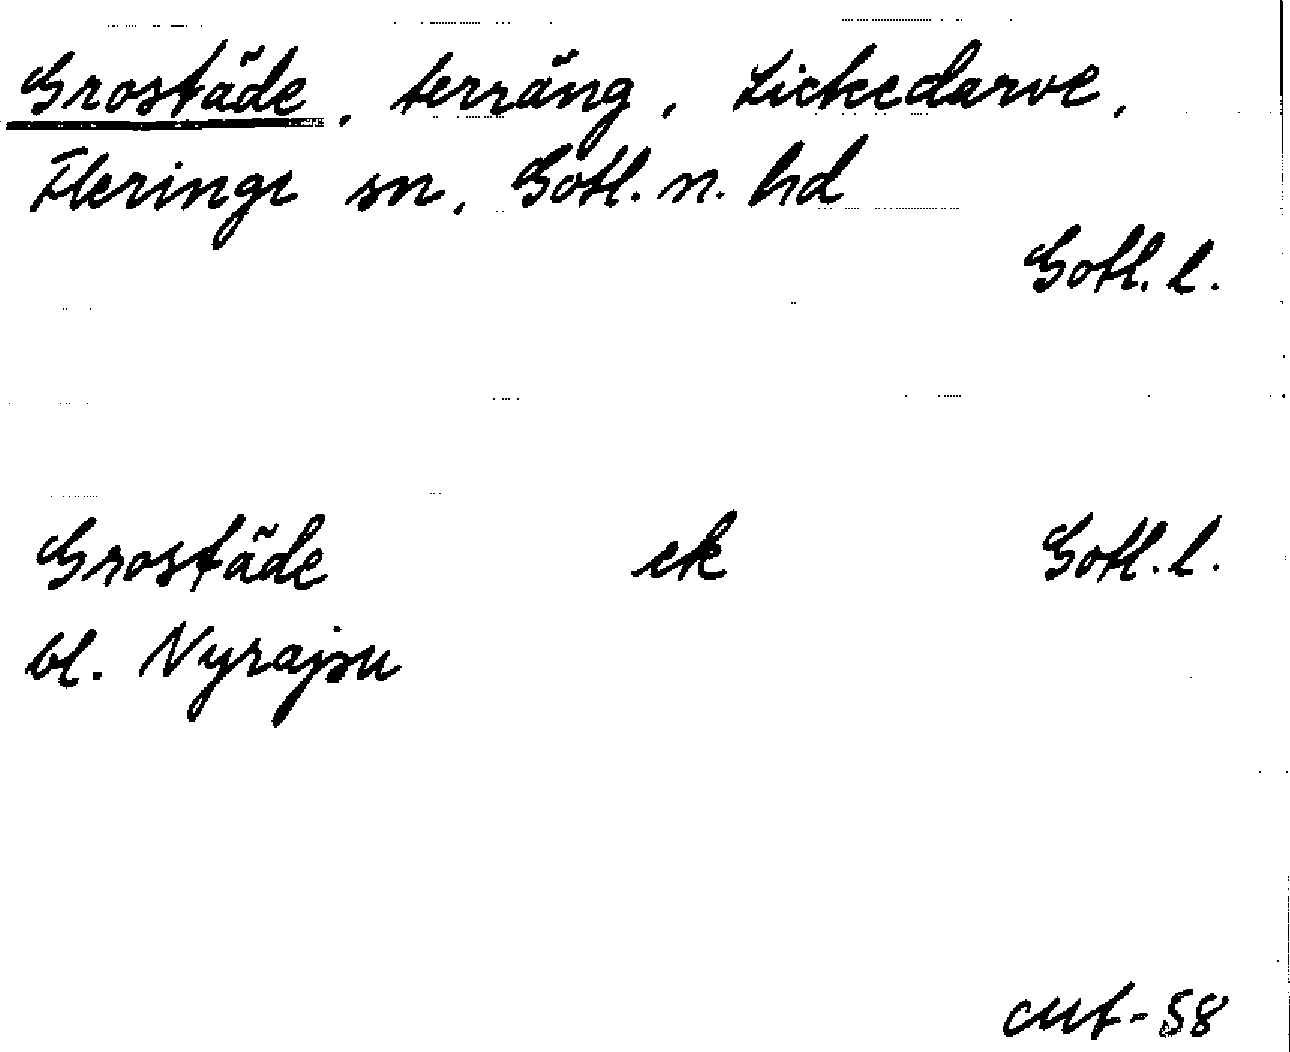 Grostäde, terräng, Lickedarve,
Fleringe sn, Gotl. n. hd
Gotl. l.
Grostäde ek Gotl. l.
bl. Nyrajsu
cut-58